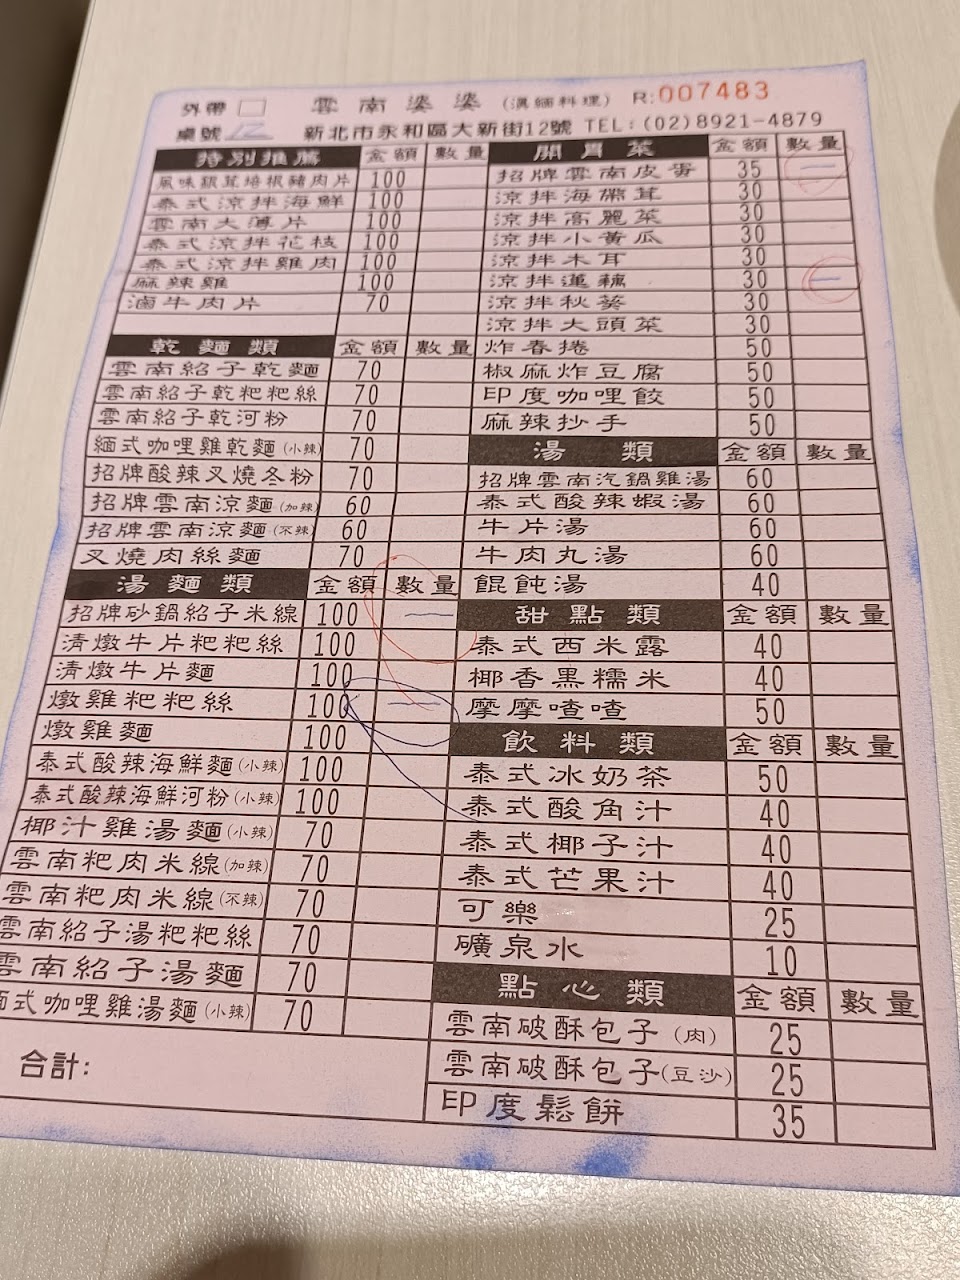 外帶 □ 雲南婆婆 (滇緬料理) R:007483
桌號 12 新北市永和區大新街12號 TEL:(02)8921-4879
特別推薦 金額 數量
風味銀茸培根豬肉片 100
泰式涼拌海鮮 100
雲南大薄片 100
泰式涼拌花枝 100
泰式涼拌雞肉 100
麻辣雞 100
滷牛肉片 70
乾麵類 金額 數量
雲南紹子乾麵 70
雲南紹子乾粑粑絲 70
雲南紹子乾河粉 70
緬式咖哩雞乾麵(小辣) 70
招牌酸辣叉燒冬粉 70
招牌雲南涼麵(加辣) 60
招牌雲南涼麵(不辣) 60
叉燒肉絲麵 70
湯麵類 金額 數量
招牌砂鍋紹子米線 100 一
清燉牛片粑粑絲 100
清燉牛片麵 100
燉雞粑粑絲 100 一
燉雞麵 100
泰式酸辣海鮮麵(小辣) 100
泰式酸辣海鮮河粉(小辣) 100
椰汁雞湯麵(小辣) 70
雲南粑肉米線(加辣) 70
雲南粑肉米線(不辣) 70
雲南紹子湯粑粑絲 70
雲南紹子湯麵 70
緬式咖哩雞湯麵(小辣) 70
合計:
開胃菜 金額 數量
招牌雲南皮蛋 35 一
涼拌海帶茸 30
涼拌高麗菜 30
涼拌小黃瓜 30
涼拌木耳 30
涼拌蓮藕 30 一
涼拌秋葵 30
涼拌大頭菜 30
炸春捲 50
椒麻炸豆腐 50
印度咖哩餃 50
麻辣抄手 50
湯類 金額 數量
招牌雲南汽鍋雞湯 60
泰式酸辣蝦湯 60
牛片湯 60
牛肉丸湯 60
餛飩湯 40
甜點類 金額 數量
泰式西米露 40
椰香黑糯米 40
摩摩喳喳 50
飲料類 金額 數量
泰式冰奶茶 50
泰式酸角汁 40
泰式椰子汁 40
泰式芒果汁 40
可樂 25
礦泉水 10
點心類 金額 數量
雲南破酥包子(肉) 25
雲南破酥包子(豆沙) 25
印度鬆餅 35